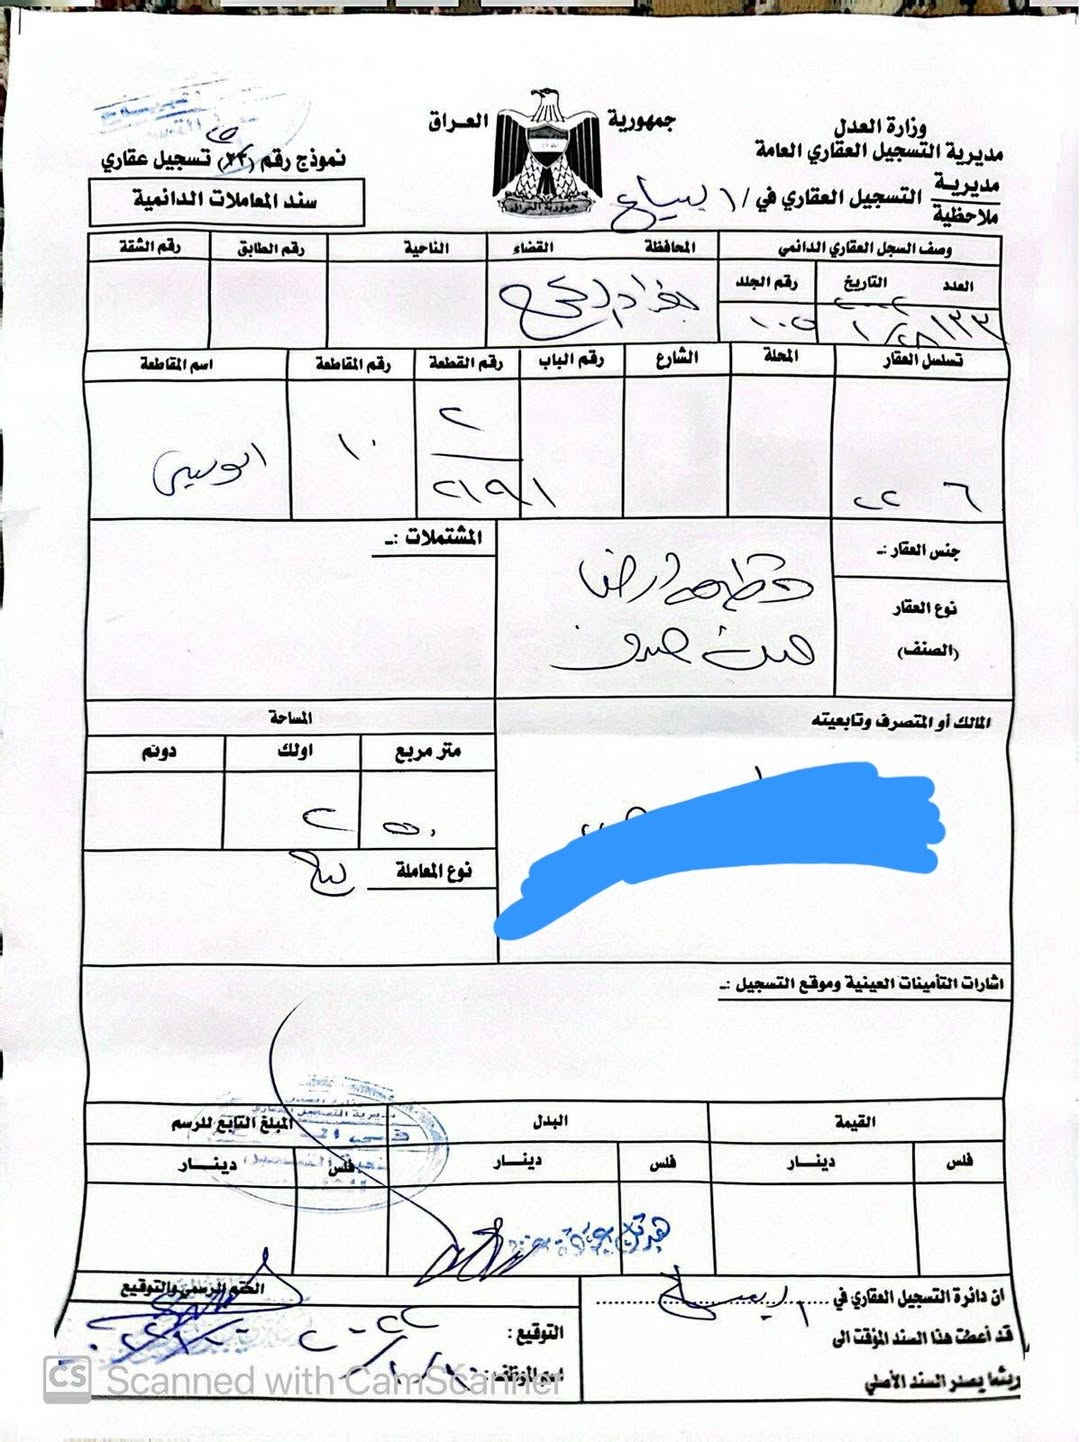 جمهورية العراق
وزارة العدل
مديرية التسجيل العقاري العامة
مديرية
ملاحظية
التسجيل العقاري في / البياع
نموذج رقم (٢٥) تسجيل عقاري
سند المعاملات الدائمية
وصف السجل العقاري الدائمي المحافظة القضاء الناحية رقم الطابق رقم الشقة
العدد التاريخ رقم الجلد
بغداد الكرخ
١٠٥
تسلسل العقار المحلة الشارع رقم الباب رقم القطعة رقم المقاطعة اسم المقاطعة
٢
٢١٩١
١٠
جنس العقار :ـ
نوع العقار
(الصنف)
قطعة ارض
ملك صرف
المشتملات :ـ
المالك أو المتصرف وتابعيته
المساحة
متر مربع اولك دونم
٥٠ ٢
نوع المعاملة بيع
اشارات التأمينات العينية وموقع التسجيل :ـ
القيمة البدل المبلغ التابع للرسم
فلس دينـــار فلس دينـــار فلس دينـــار
ان دائرة التسجيل العقاري في البياع
قد أعطت هذا السند المؤقت الى
ريثما يصدر السند الأصلي
الختم الرسمي والتوقيع
التوقيع :
اسم الموظف :
CS Scanned with CamScanner